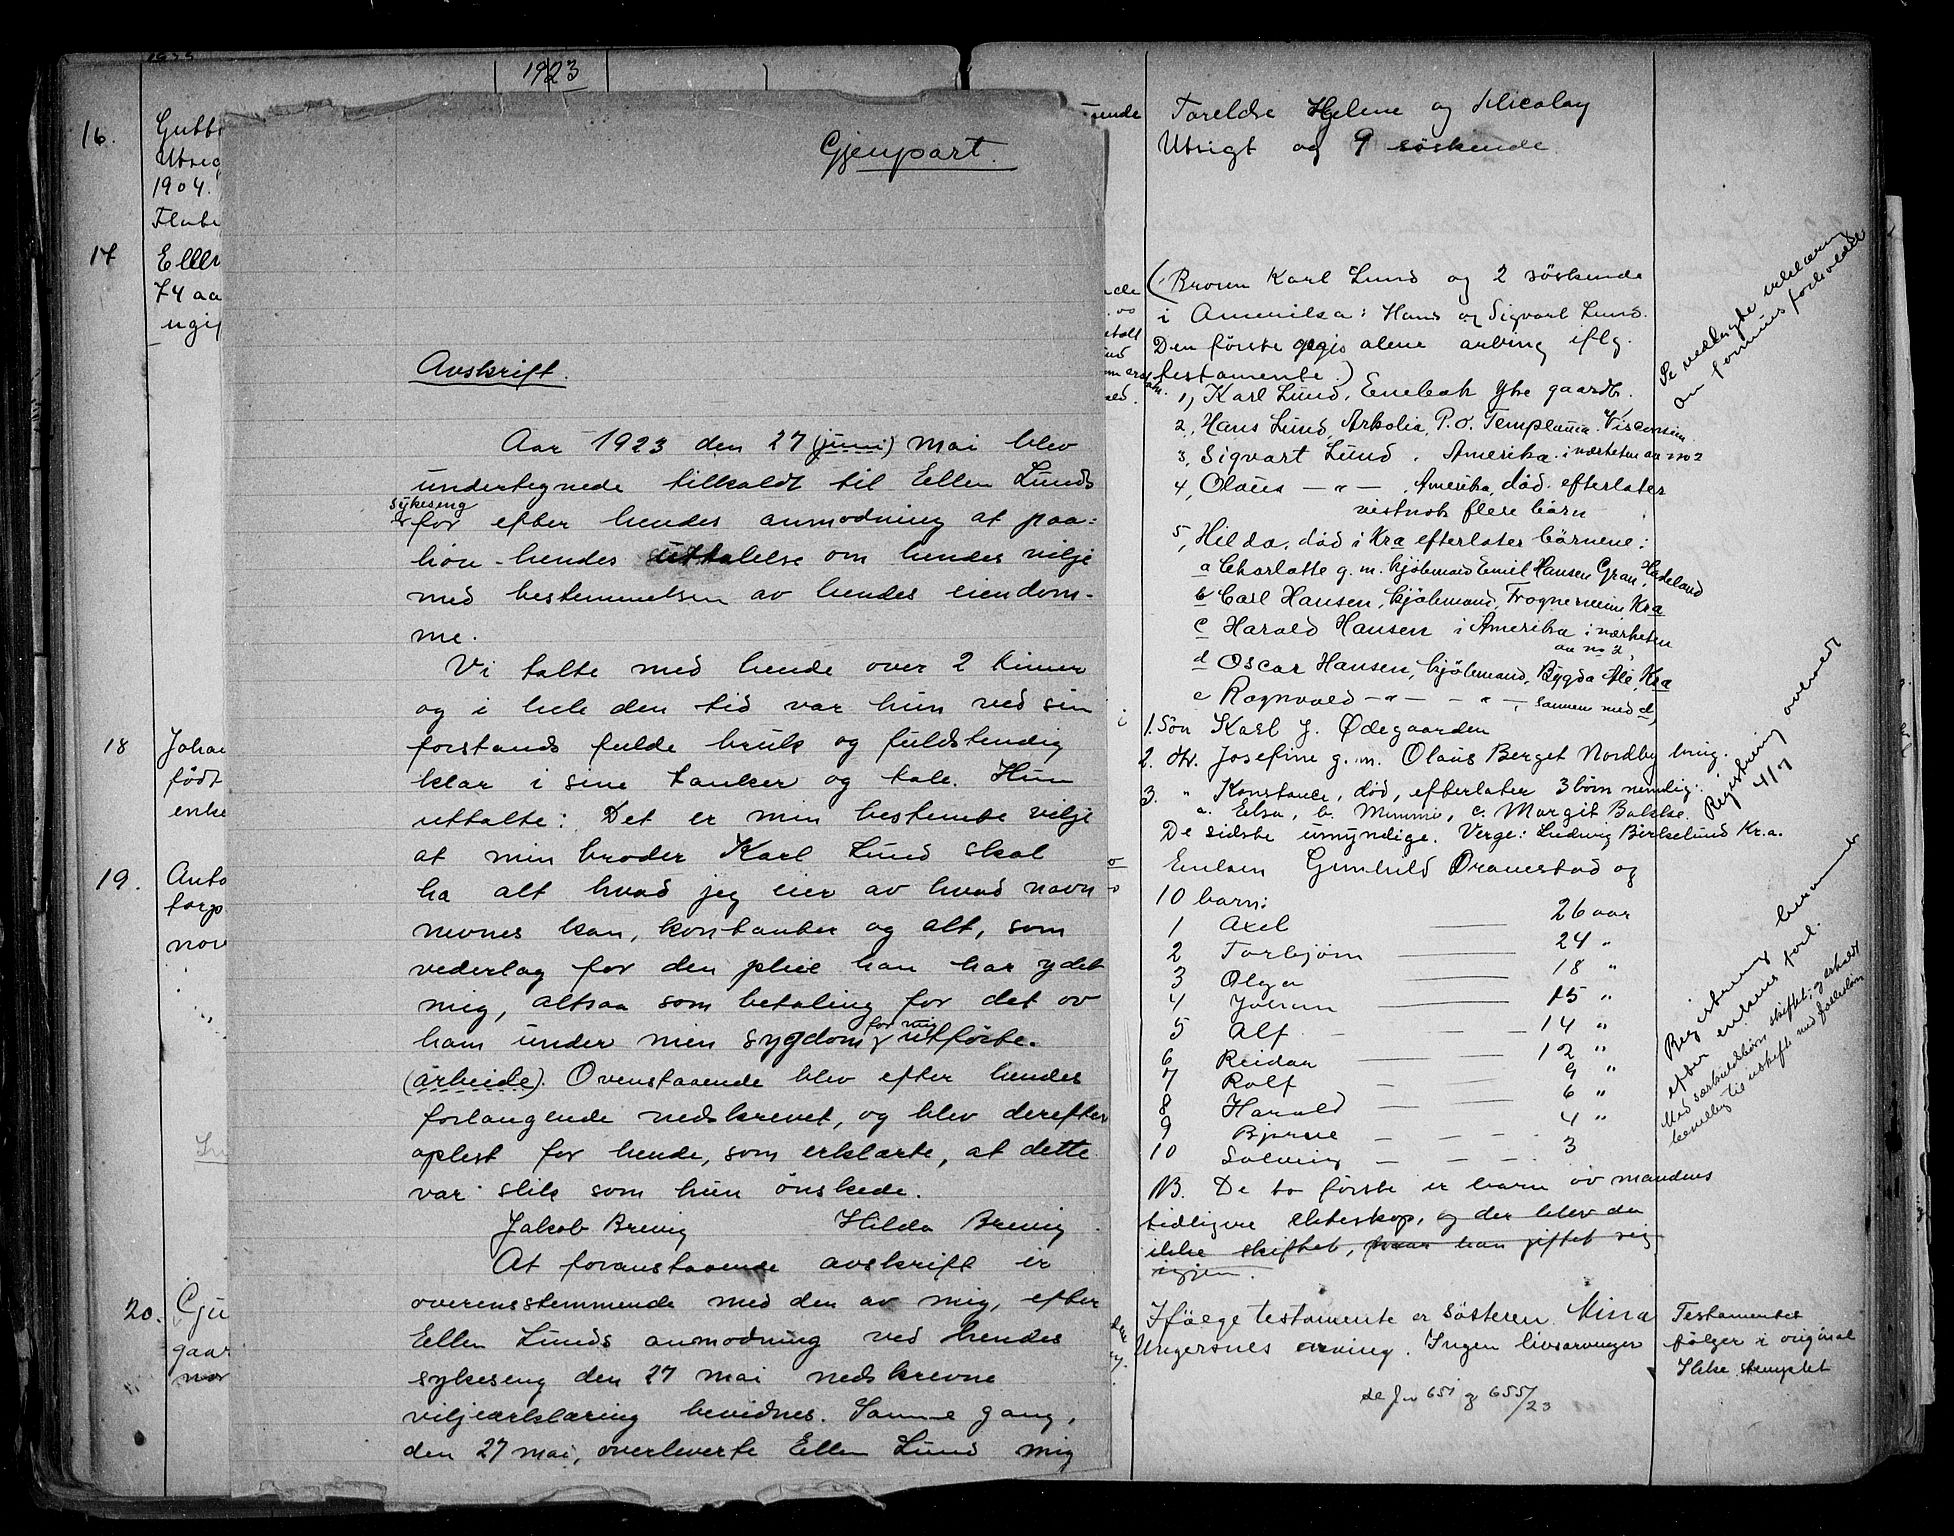 1923
16.
Gutt
Utsig
1904.
Flate
17
Ellen
74 aa
ugif
18
Johan
født
enke
19.
Anto
torp
nov
20.
Gju
gaar
nov
Gjenpart.
Avskrift.
Aar 1923 den 27 (juni) mai blev
undertegnede tilkaldt til Ellen Lunds
sykeseng
for efter hendes anmodning at paa-
höre hendes uttalelse om hendes vilje
med bestemmelsen av hendes eiendom-
me.
Vi talte med hende over 2 timer
og i hele den tid var hun ved sin
forstands fulde bruk og fuldstendig
klar i sine tanker og tale. Hun
uttalte: Det er min bestemte vilje
at min broder Karl Lund skal
ha alt hvad jeg eier av hvad navn
nevnes kan, kontanter og alt, som
vederlag for den pleie han har ydet
mig, altsaa som betaling for det av
ham under min sygdom for mig utförte.
(arbeide). Ovenstaaende blev efter hendes
forlangende nedskrevet, og blev derefter
oplest for hende, som erklærte, at dette
var slik som hun önskede.
Jakob Brevig Hilda Brevig
At foranstaaende avskrift er
overensstemmende med den av mig, efter
Ellen Lunds anmodning ved hendes
sykeseng den 27 mai nedskrevne
viljeærklæring bevidnes. Samme gang,
den 27 mai, overleverte Ellen Lund mig
Foreldre Helene og Nicolay
Utsigt og 9 söskende
(Broren Karl Lund og 2 söskende
i Amerika: Hans og Sigvart Lund.
Den förste alene arving iflg.
testamente.)
1, Karl Lund, Enebak Ytre gaardb.
2, Hans Lund, Arkolia, P.o. Wisconsin
3, Sigvart Lund, Amerika i nærheten av no 2
4, Olaus — " — , Amerika, död. efterlater
vistnok flere barn
5, Hilda, död i Kra efterlater börnene:
a Charlotte g. m. kjöbmand Emil Hansen Gran, Hadeland
b Carl Hansen, kjöbmand, Kra
c Harald Hansen i Amerika i nærheten
av no 2,
d Oscar Hansen, kjöbmand, Bygdö Alé, Kra
e Ragnvald — " — — " —, sammen med d,
1. Sön Karl J. Ødegaarden
2. dtr. Josefine g. m. Olaus Berget Nordby brug.
3. " Konstance, död, efterlater 3 börn nemlig:
a. Elsa, b. Mimmi, c. Margit Bakke.
De sidste umyndige. Verge: Ludvig Birkelund Kr.a.
Enken Gunhild Dramstad og
10 barn:
1 Axel — 26 aar
2 Torbjörn — 24 "
3 Olga — 18 "
4 — 15 "
5 Alf — 14 "
6 Reidar — 12 "
7 Rolf — 9 "
8 Harald — 6 "
9 Bjarne — 4 "
10 Solveig — 3
NB. De to förste er barn av mandens
tidligere ekteskap, og der blev da
ikke skiftet, han giftet sig
igjen.
Ifölge testamente er söster Mina
Ungersnes arving. Ingen livsarvinger
se Jr 651 og 655/23
Se vedlagte erklæring
om formues forholdet
Registrering avholdt
4/7
Registrering
efter enkens forl.
Med særkuldsbörn skiftet; og erholdt
bevilling til uskifte med fællesbörn
Testamentet
fölger i original
Ikke stemplet